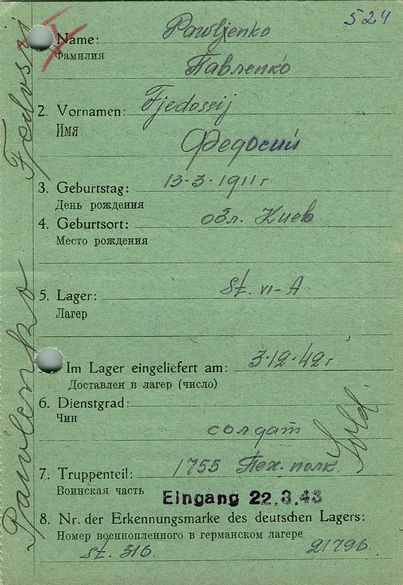 524
Name: Pawljenko
Фамилия Павленко
2. Vornamen: Fjedossij
Имя Федосий
3. Geburtstag: 13-3-1911 г
День рождения
4. Geburtsort: обл. Киев
Место рождения
5. Lager: St. VI-A
Лагер
Im Lager eingeliefert am: 3-12-42 г
Доставлен в лагер (число)
6. Dienstgrad:
Чин солдат
Sold.
7. Truppenteil: 1755 Пех. полк.
Воинская часть Eingang 22.3.43
8. Nr. der Erkennungsmarke des deutschen Lagers:
Номер военнопленного в германском лагере
St. 316 21796
Pawlenko Fedosij